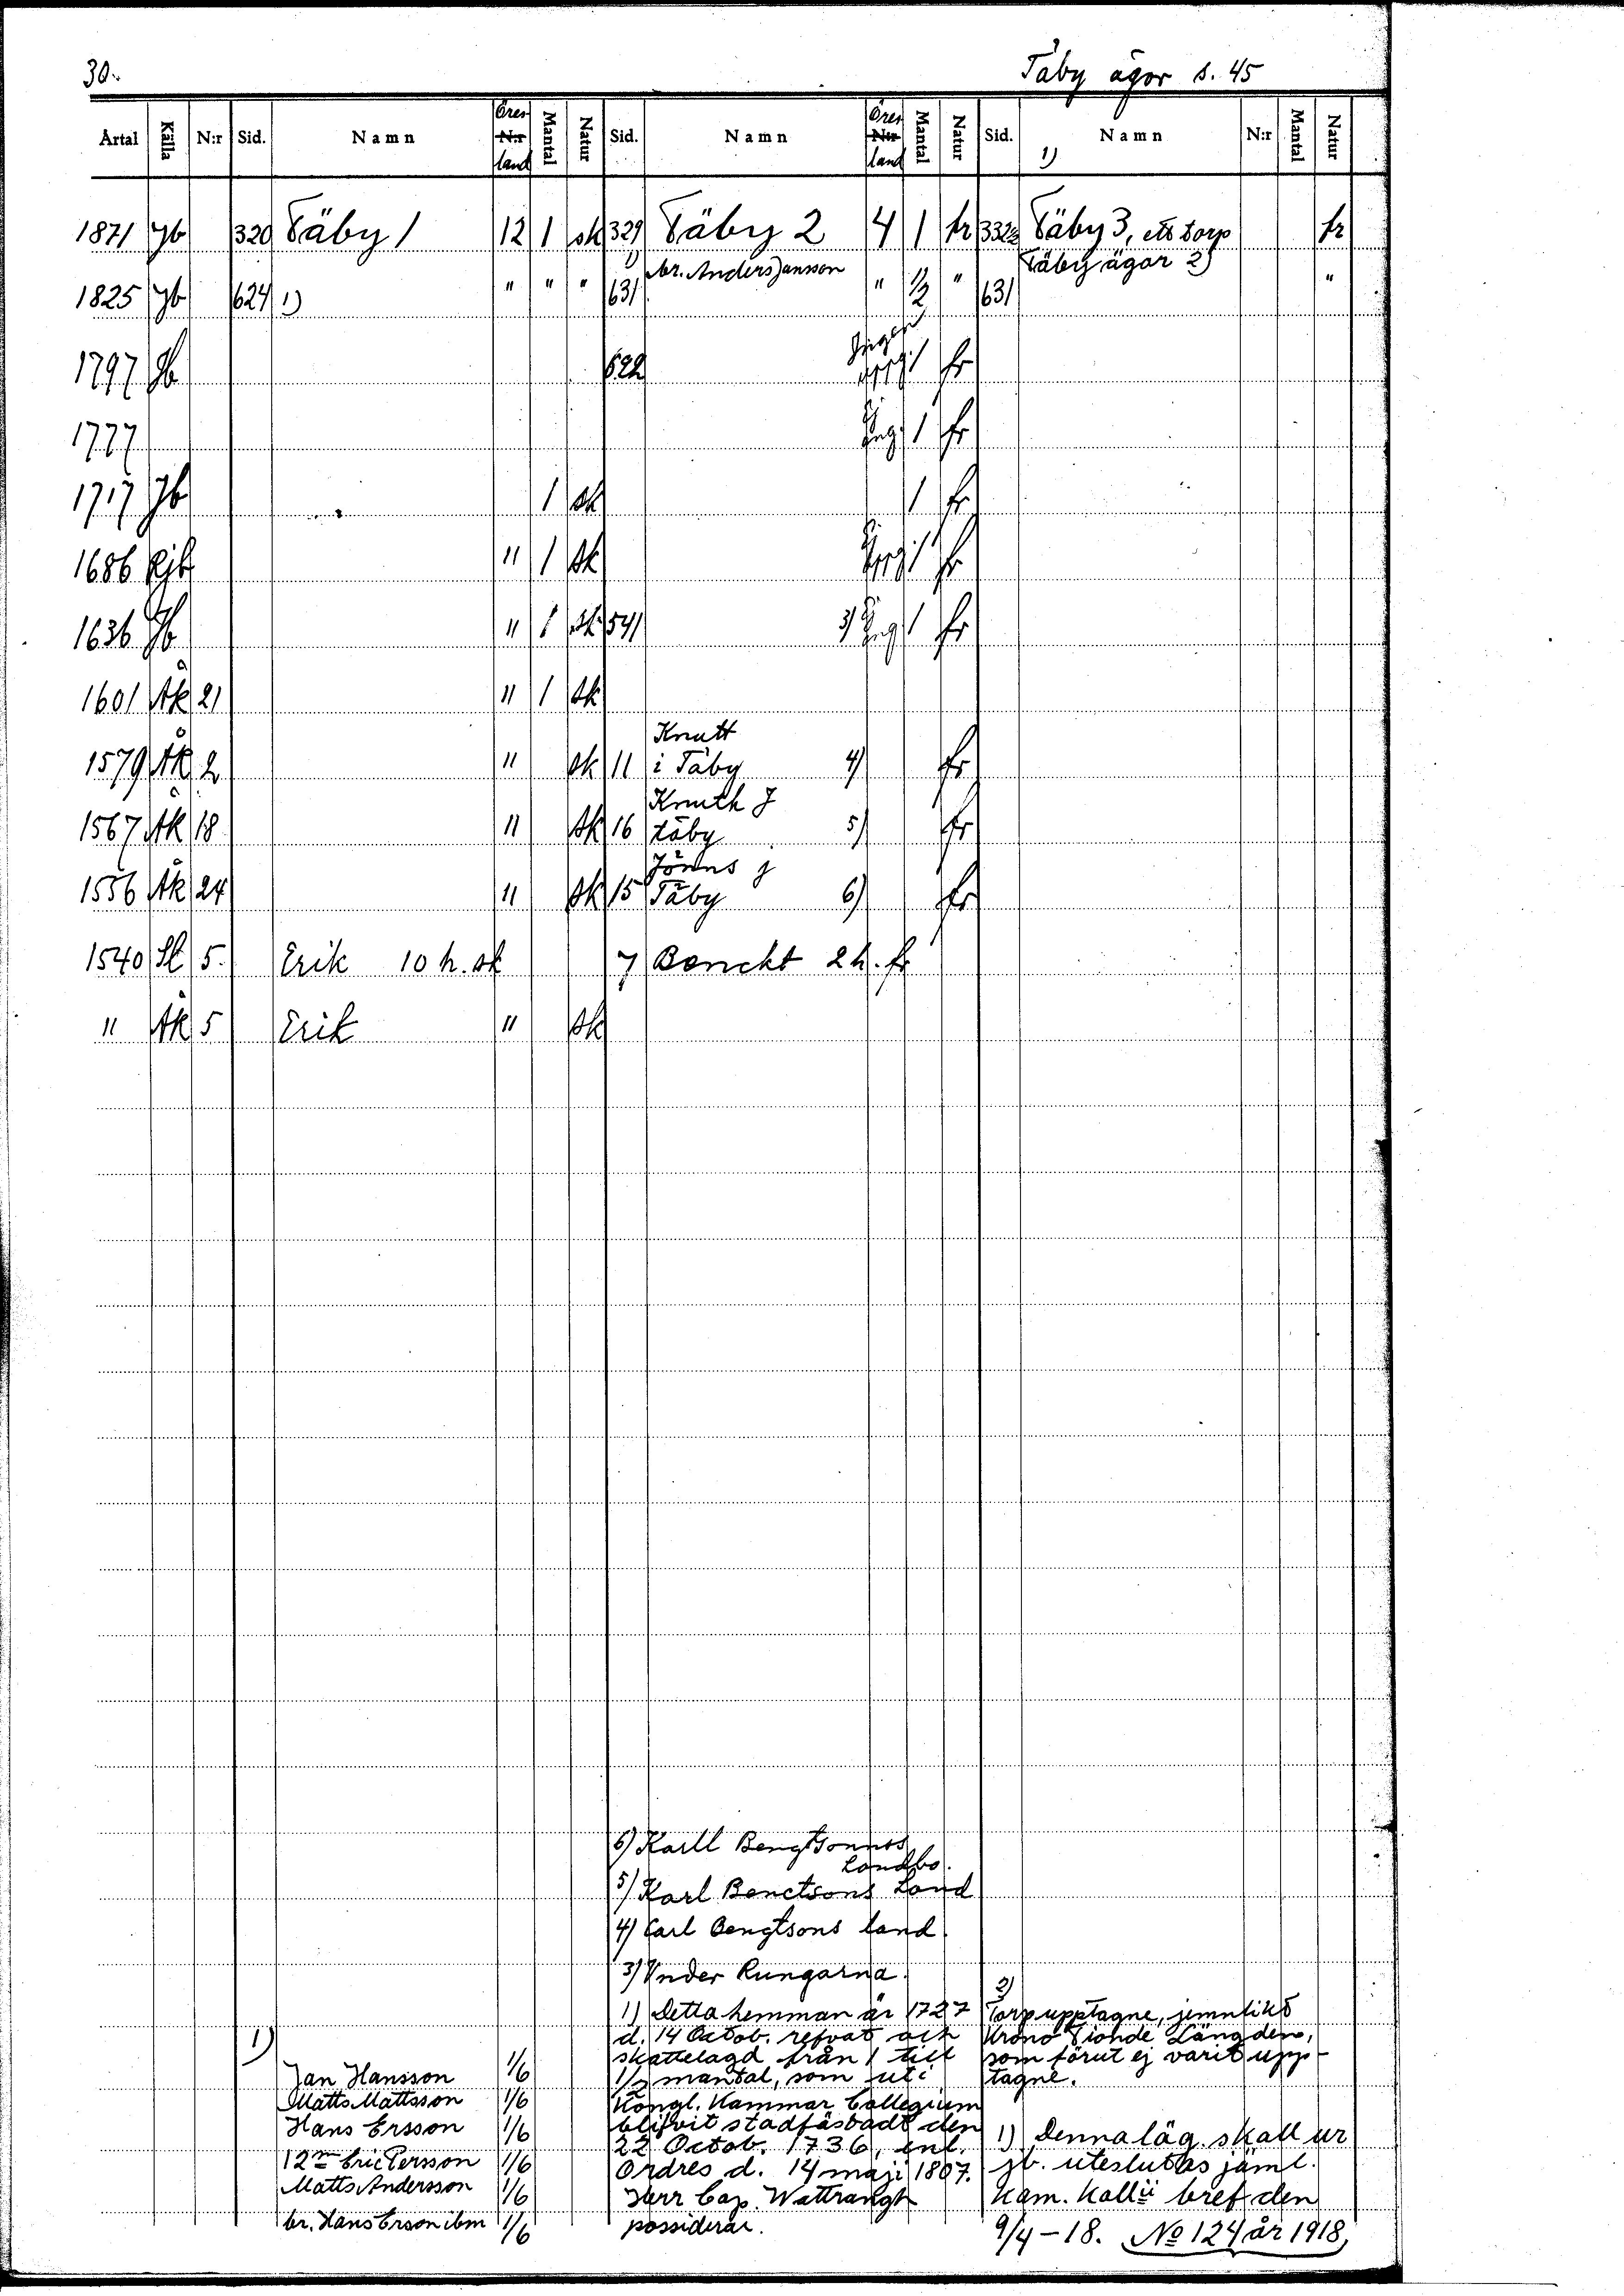 30.
Täby ägor s. 45
Årtal Källa N:r Sid. Namn Öres land Mantal Natur Sid. Namn Öres land Mantal Natur Sid. Namn N:r Mantal Natur
1)
1871 Jb 320 Täby 1 12 1 sk 329 Täby 2 4 1 fr 332 Täby 3, ett torp fr
1825 Jb 624 1) " " " 1) 631 br. Anders Jansson " 1/2 " 631 Täby ägor 2) "
1797 Jb 622 1 fr
1777 1 fr
1717 Jb 1 sk 1 fr
1686 Rjb " 1 sk 1 fr
1636 Jb " 1 sk 541 3) 1 fr
1601 Åk 21 " 1 sk
Knutt
1579 Åk 2 " sk 11 i Täby 4) fr
Knuth J
1567 Åk 18 " sk 16 täby 5) fr
Jönns j
1556 Åk 24 " sk 15 Täby 6) fr
1540 Sl 5. Erik 10 h. sk 7 Benckt 2 h. fr
" Åk 5 Erik " sk
6) Karll Bengtsonnss
Landbo.
5) Karl Benctsons Land
4) Carl Bengtsons land
3) Vnder Rungarna.
1) Detta hemman är 1727
d. 14 Octob. refvat och
skattelagd från 1 till
1/2 mantal, som uti
Kongl. Kammar Collegium
blifvit stadfästadt den
22 Octob. 1736, enl.
Ordres d. 14 maji 1807.
Herr Cap. Wattrangh
possiderar.
1)
Jan Hansson 1/6
Matts Mattsson 1/6
Hans Ersson 1/6
12m Eric Persson 1/6
Matts Andersson 1/6
br. Hans Erson ibm 1/6
2)
Torp upptagne, jemnlikt
Krono Tionde Längden,
som förut ej varit upp-
tagne.
1) Denna läg. skall ur
jb. uteslutas jäml.
Kam. Kollii bref den
9/4-18. No 124 år 1918,